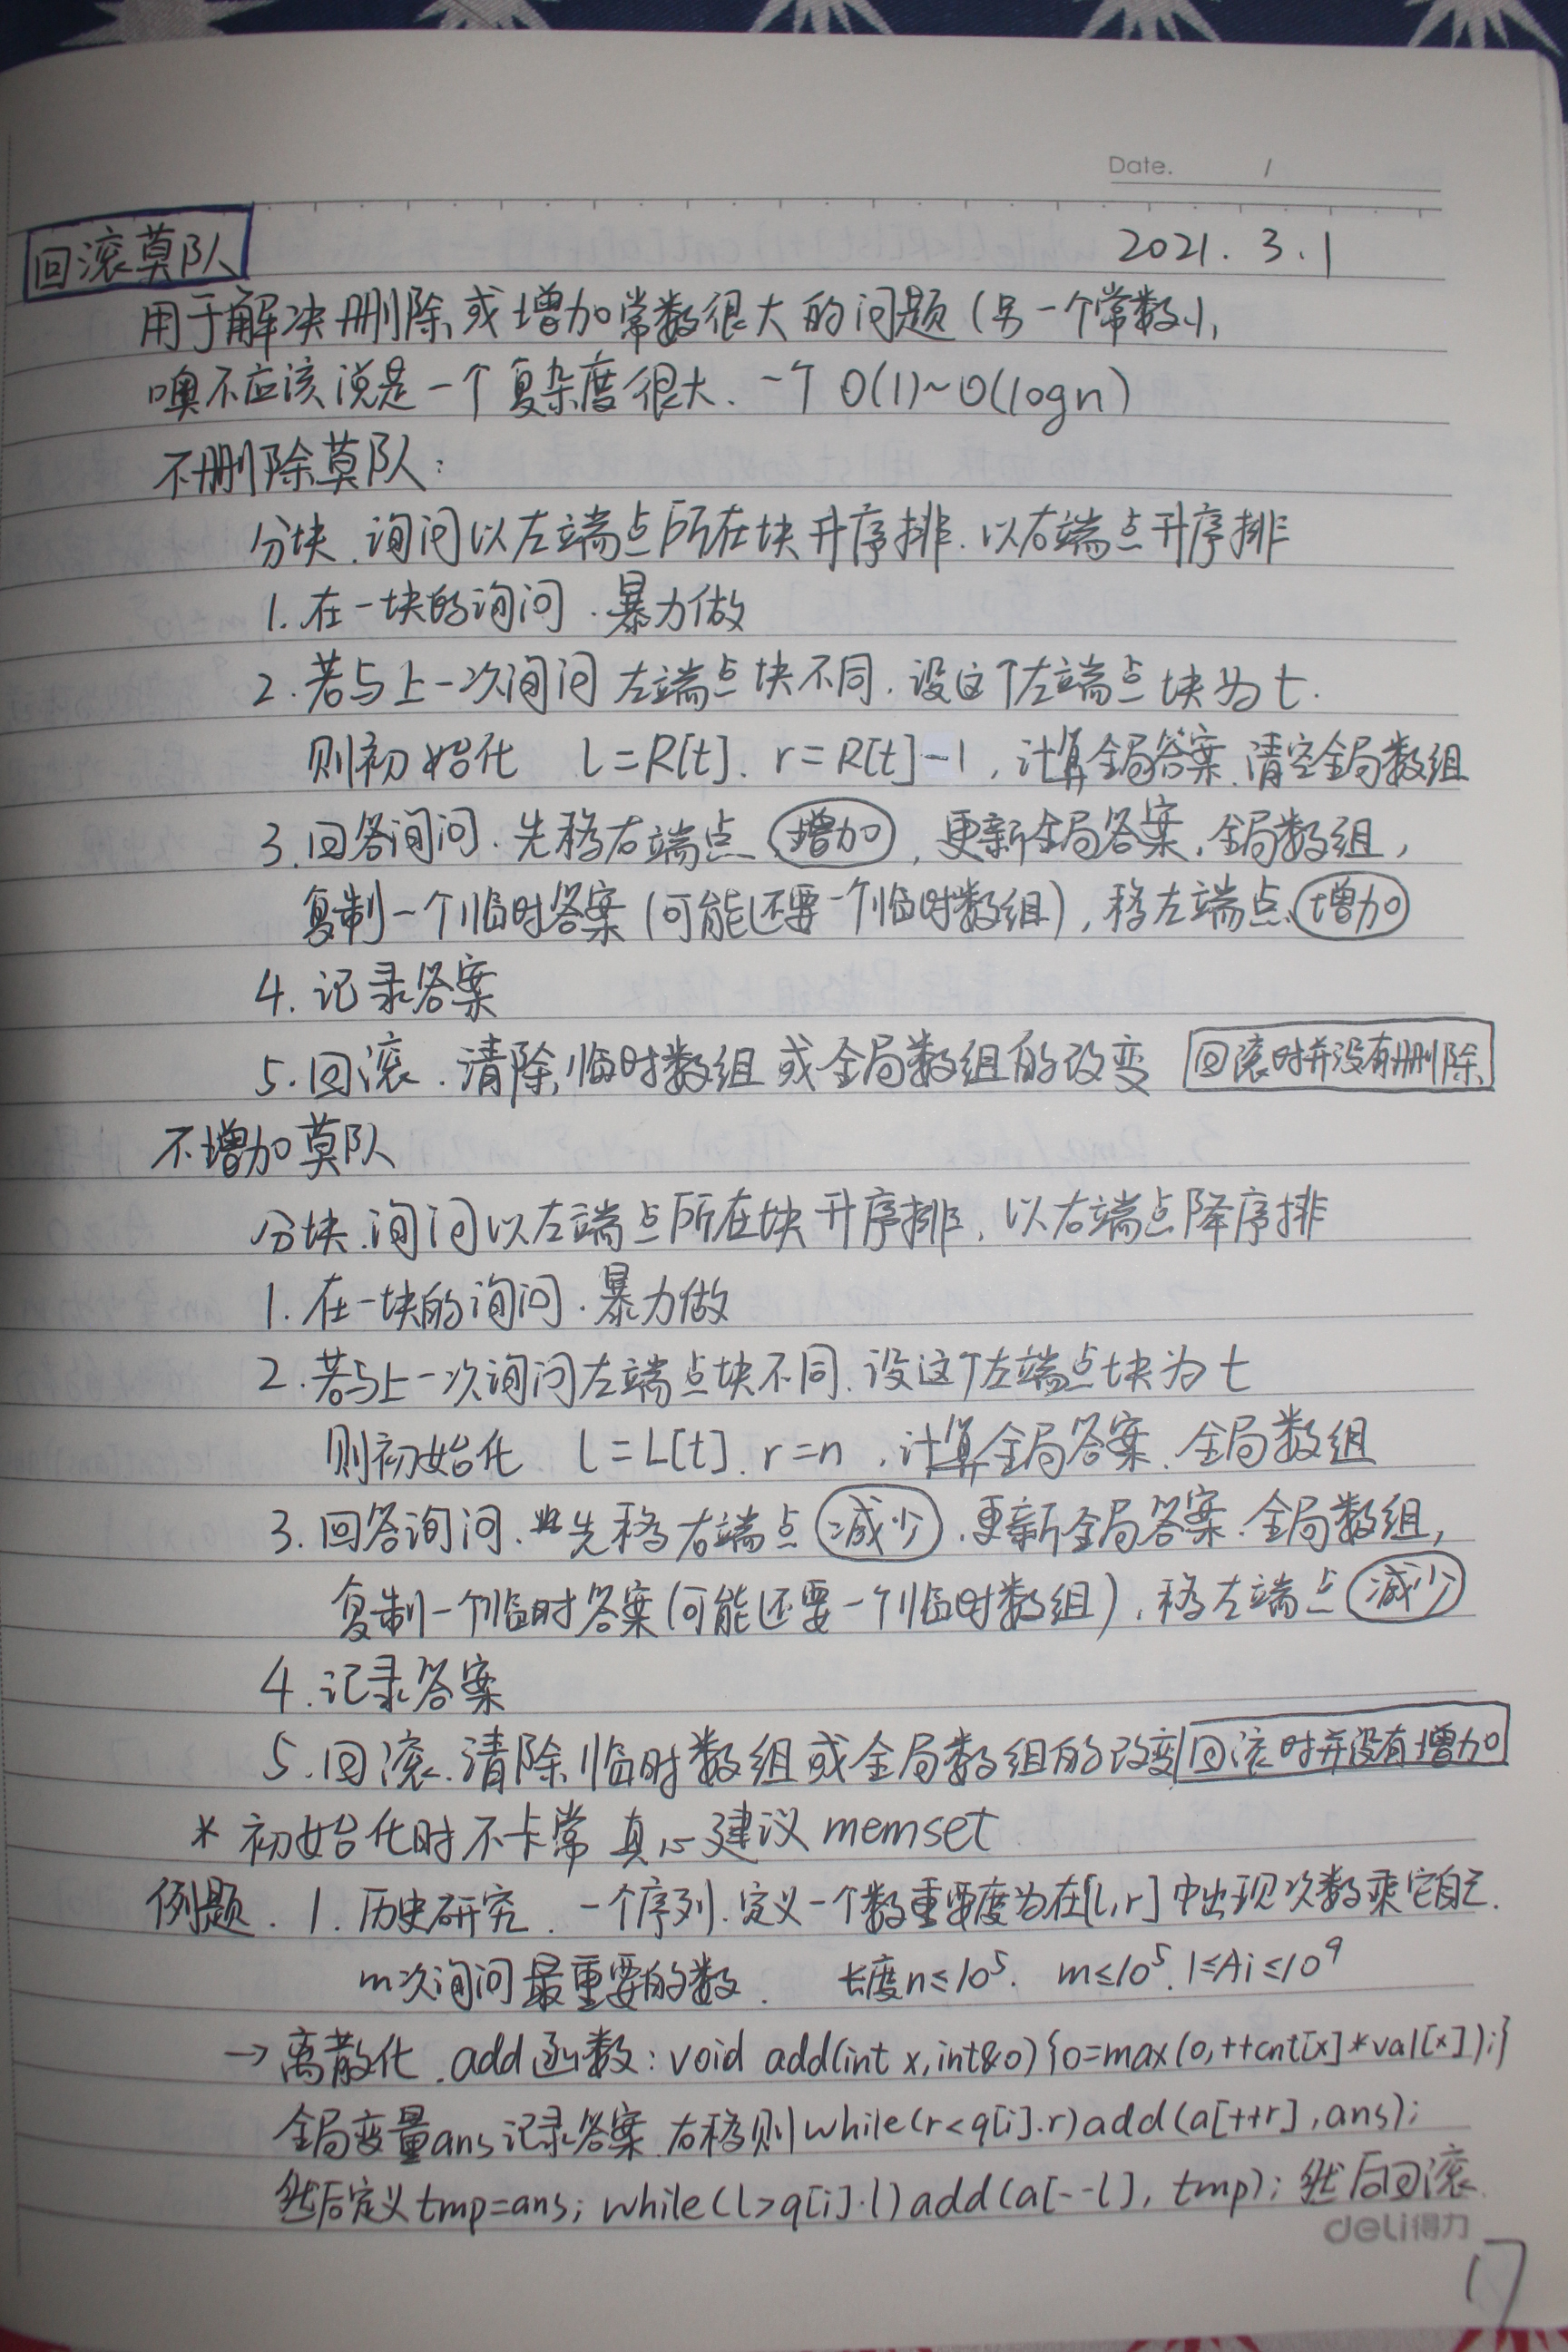 Date. /
2021. 3. 1
回滚莫队
用于解决删除或增加常数很大的问题(另一个常数小,
噢不应该说是一个复杂度很大、一个 O(1)~O(logn)
不删除莫队:
分块、询问以左端点所在块升序排、以右端点升序排
1. 在一块的询问、暴力做
2. 若与上一次询问左端点块不同,设这个左端点块为t.
则初始化 l=R[t]、r=R[t]-1,计算全局答案、清空全局数组
3. 回答询问、先移右端点 增加,更新全局答案、全局数组,
复制一个临时答案(可能还要一个临时数组),移左端点、增加
4. 记录答案
5. 回滚、清除临时数组或全局数组的改变 回滚时并没有删除
不增加莫队
分块、询问以左端点所在块升序排、以右端点降序排
1. 在一块的询问、暴力做
2. 若与上一次询问左端点块不同、设这个左端点块为t
则初始化 l=L[t]、r=n,计算全局答案、全局数组
3. 回答询问、先移右端点 减少、更新全局答案、全局数组,
复制一个临时答案(可能还要一个临时数组),移左端点 减少
4. 记录答案
5. 回滚、清除临时数组或全局数组的改变 回滚时并没有增加
* 初始化时不卡常 真心建议 memset
例题. 1. 历史研究、一个序列、定义一个数重要度为在[l,r]中出现次数乘它自己.
m次询问最重要的数. 长度n≤10⁵. m≤10⁵. 1≤Ai≤10⁹
→ 离散化、add函数: void add(int x,int&o){o=max(o,++cnt[x]*val[x]);}
全局变量ans记录答案、右移则while(r<q[i].r)add(a[++r],ans);
然后定义tmp=ans; while(l>q[i].l)add(a[--l], tmp); 然后回滚
deli得力
17